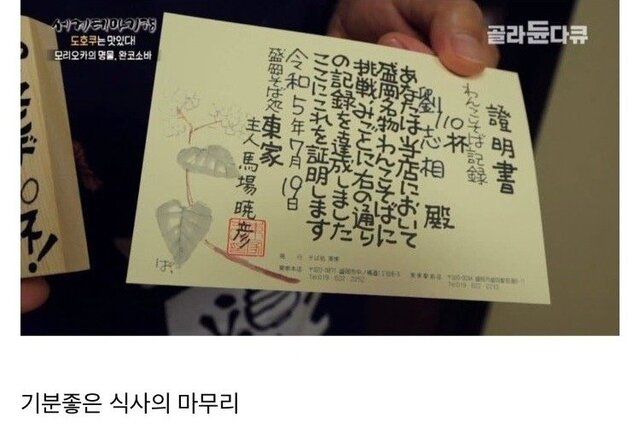 세계테마기행
도호쿠는 맛있다!
모리오카의 명물, 완코소바
골라듄다큐
證明書
わんこそば記録
110杯
劉志相 殿
あなたは当店において
盛岡名物わんこそばに
挑戦みごとに右の通り
の記録を達成しました
ここにこれを証明します
令和5年7月19日
盛岡そば処 東家
主人 馬場暁彦
기분좋은 식사의 마무리